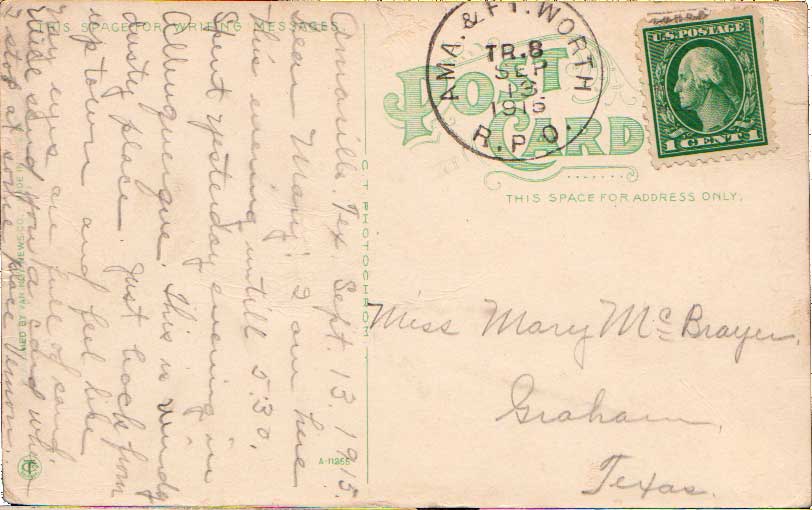 THIS SPACE FOR WRITING MESSAGES
Amarillo, Tex. Sept. 13, 1915.
Dear Mary: I am here
this evening untill 5:30.
Spent yesterday evening in
Albuquerque. This is windy
dusty place. Just back from
up town and feel like
my eyes are full of sand.
Will send you a card when
I stop at some place
A-11265
AMA. & FT. WORTH
TR. 8
SEP
13
1915
R.P.O.
U.S. POSTAGE
1 CENT 1
POST
CARD
THIS SPACE FOR ADDRESS ONLY.
Miss Mary McBrayer,
Graham,
Texas.